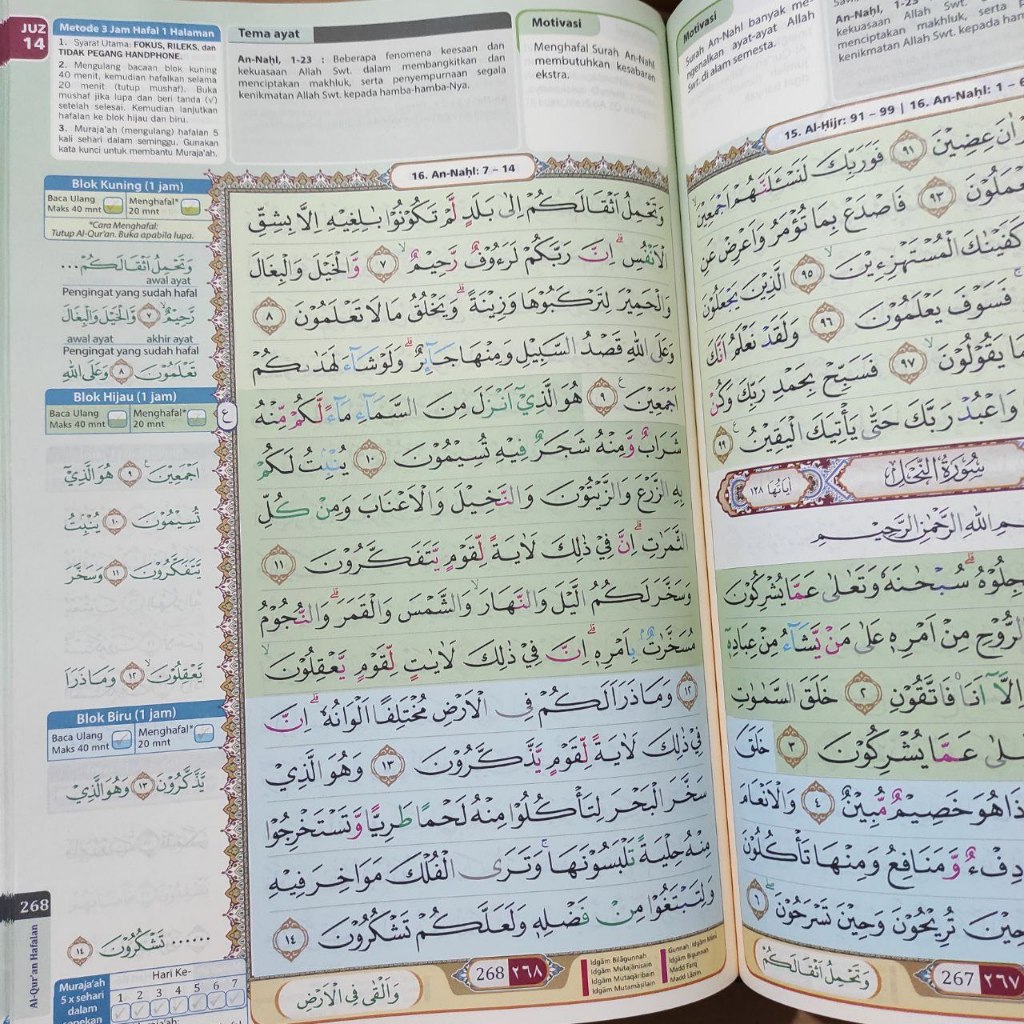 JUZ
14
Metode 3 Jam Hafal 1 Halaman
1. Syarat Utama: FOKUS, RILEKS, dan
TIDAK PEGANG HANDPHONE.
2. Mengulang bacaan blok kuning
40 menit, kemudian hafalkan selama
20 menit (tutup mushaf). Buka
mushaf jika lupa dan beri tanda (√)
setelah selesai. Kemudian lanjutkan
hafalan ke blok hijau dan biru.
3. Muraja'ah (mengulang) hafalan 5
kali sehari dalam seminggu. Gunakan
kata kunci untuk membantu Muraja'ah.
Tema ayat
An-Naḥl, 1-23 : Beberapa fenomena keesaan dan
kekuasaan Allah Swt. dalam membangkitkan dan
menciptakan makhluk, serta penyempurnaan segala
kenikmatan Allah Swt. kepada hamba-hamba-Nya.
Motivasi
Menghafal Surah An-Naḥl
membutuhkan kesabaran
ekstra.
Blok Kuning (1 jam)
Baca Ulang
Maks 40 mnt
Menghafal*
20 mnt
*Cara Menghafal:
Tutup Al-Qur'an. Buka apabila lupa.
وَتَحْمِلُ اَثْقَالَكُمْ...
awal ayat
Pengingat yang sudah hafal
رَّحِيْمٌ ٧ وَّالْخَيْلَ وَالْبِغَالَ
awal ayat akhir ayat
Pengingat yang sudah hafal
تَعْلَمُوْنَ ٨ وَعَلَى اللّٰهِ
Blok Hijau (1 jam)
Baca Ulang
Maks 40 mnt
Menghafal*
20 mnt
اَجْمَعِيْنَ ٩ هُوَ الَّذِيْٓ
تُسِيْمُوْنَ ١٠ يُنْۢبِتُ
يَّتَفَكَّرُوْنَ ١١ وَسَخَّرَ
يَّعْقِلُوْنَ ١٢ وَمَا ذَرَاَ
Blok Biru (1 jam)
Baca Ulang
Maks 40 mnt
Menghafal*
20 mnt
يَّذَّكَّرُوْنَ ١٣ وَهُوَ الَّذِيْ
...... تَشْكُرُوْنَ ١٤
268
Al-Qur'an Hafalan
Muraja'ah
5 x sehari
dalam
sepekan
Hari Ke-
1 2 3 4 5 6 7
16. An-Naḥl: 7 – 14
وَتَحْمِلُ اَثْقَالَكُمْ اِلٰى بَلَدٍ لَّمْ تَكُوْنُوْا بٰلِغِيْهِ اِلَّا بِشِقِّ
الْاَنْفُسِۗ اِنَّ رَبَّكُمْ لَرَءُوْفٌ رَّحِيْمٌۙ ٧ وَّالْخَيْلَ وَالْبِغَالَ
وَالْحَمِيْرَ لِتَرْكَبُوْهَا وَزِيْنَةًۗ وَيَخْلُقُ مَا لَا تَعْلَمُوْنَ ٨
وَعَلَى اللّٰهِ قَصْدُ السَّبِيْلِ وَمِنْهَا جَاۤىِٕرٌۗ وَلَوْ شَاۤءَ لَهَدٰىكُمْ
اَجْمَعِيْنَࣖ ٩ هُوَ الَّذِيْٓ اَنْزَلَ مِنَ السَّمَاۤءِ مَاۤءً لَّكُمْ مِّنْهُ
شَرَابٌ وَّمِنْهُ شَجَرٌ فِيْهِ تُسِيْمُوْنَ ١٠ يُنْۢبِتُ لَكُمْ
بِهِ الزَّرْعَ وَالزَّيْتُوْنَ وَالنَّخِيْلَ وَالْاَعْنَابَ وَمِنْ كُلِّ
الثَّمَرٰتِۗ اِنَّ فِيْ ذٰلِكَ لَاٰيَةً لِّقَوْمٍ يَّتَفَكَّرُوْنَ ١١
وَسَخَّرَ لَكُمُ الَّيْلَ وَالنَّهَارَۙ وَالشَّمْسَ وَالْقَمَرَۗ وَالنُّجُوْمُ
مُسَخَّرٰتٌۢ بِاَمْرِهٖۗ اِنَّ فِيْ ذٰلِكَ لَاٰيٰتٍ لِّقَوْمٍ يَّعْقِلُوْنَۙ
١٢ وَمَا ذَرَاَ لَكُمْ فِى الْاَرْضِ مُخْتَلِفًا اَلْوَانُهٗۗ اِنَّ
فِيْ ذٰلِكَ لَاٰيَةً لِّقَوْمٍ يَّذَّكَّرُوْنَ ١٣ وَهُوَ الَّذِيْ
سَخَّرَ الْبَحْرَ لِتَأْكُلُوْا مِنْهُ لَحْمًا طَرِيًّا وَّتَسْتَخْرِجُوْا
مِنْهُ حِلْيَةً تَلْبَسُوْنَهَاۚ وَتَرَى الْفُلْكَ مَوَاخِرَ فِيْهِ
وَلِتَبْتَغُوْا مِنْ فَضْلِهٖ وَلَعَلَّكُمْ تَشْكُرُوْنَ ١٤
وَاَلْقٰى فِى الْاَرْضِ
268 ٢٦٨
Idgām Bilāgunnah
Idgām Mutajānisain
Idgām Mutaqāribain
Idgām Mutamāṡilain
Gunnah, Idgām Mimi
Idgām Bigunnah
Madd Farq
Madd Lāzim
Motivasi
Surah An-Naḥl banyak me-
ngenalkan ayat-ayat
Swt. di alam semesta.
An-Naḥl, 1-23
kekuasaan Allah Swt.
menciptakan makhluk, serta
kenikmatan Allah Swt. kepada
15. Al-Ḥijr: 91 – 99 | 16. An-Naḥl: 1 – 6
عِضِيْنَ ٩١ فَوَرَبِّكَ لَنَسْـَٔلَنَّهُمْ اَجْمَعِيْنَ
٩٣ فَاصْدَعْ بِمَا تُؤْمَرُ وَاَعْرِضْ عَنِ
كَفَيْنٰكَ الْمُسْتَهْزِءِيْنَۙ ٩٥ الَّذِيْنَ يَجْعَلُوْنَ
فَسَوْفَ يَعْلَمُوْنَ ٩٦ وَلَقَدْ نَعْلَمُ اَنَّكَ
يَقُوْلُوْنَۙ ٩٧ فَسَبِّحْ بِحَمْدِ رَبِّكَ وَكُنْ
وَاعْبُدْ رَبَّكَ حَتّٰى يَأْتِيَكَ الْيَقِيْنُࣖ ٩٩
سُوْرَةُ النَّحْلِ
اٰيَاتُهَا ١٢٨
اللّٰهِ الرَّحْمٰنِ الرَّحِيْمِ
سُبْحٰنَهٗ وَتَعٰلٰى عَمَّا يُشْرِكُوْنَ
مِنْ اَمْرِهٖ عَلٰى مَنْ يَّشَاۤءُ مِنْ عِبَادِهٖٓ
اِلَّآ اَنَا۠ فَاتَّقُوْنِ ٢ خَلَقَ السَّمٰوٰتِ
عَمَّا يُشْرِكُوْنَ ٣ خَلَقَ
هُوَ خَصِيْمٌ مُّبِيْنٌ ٤ وَالْاَنْعَامَ
دِفْءٌ وَّمَنَافِعُ وَمِنْهَا تَأْكُلُوْنَ
حِيْنَ تُرِيْحُوْنَ وَحِيْنَ تَسْرَحُوْنَۖ ٦
وَتَحْمِلُ اَثْقَالَكُمْ
267 ٢٦٧